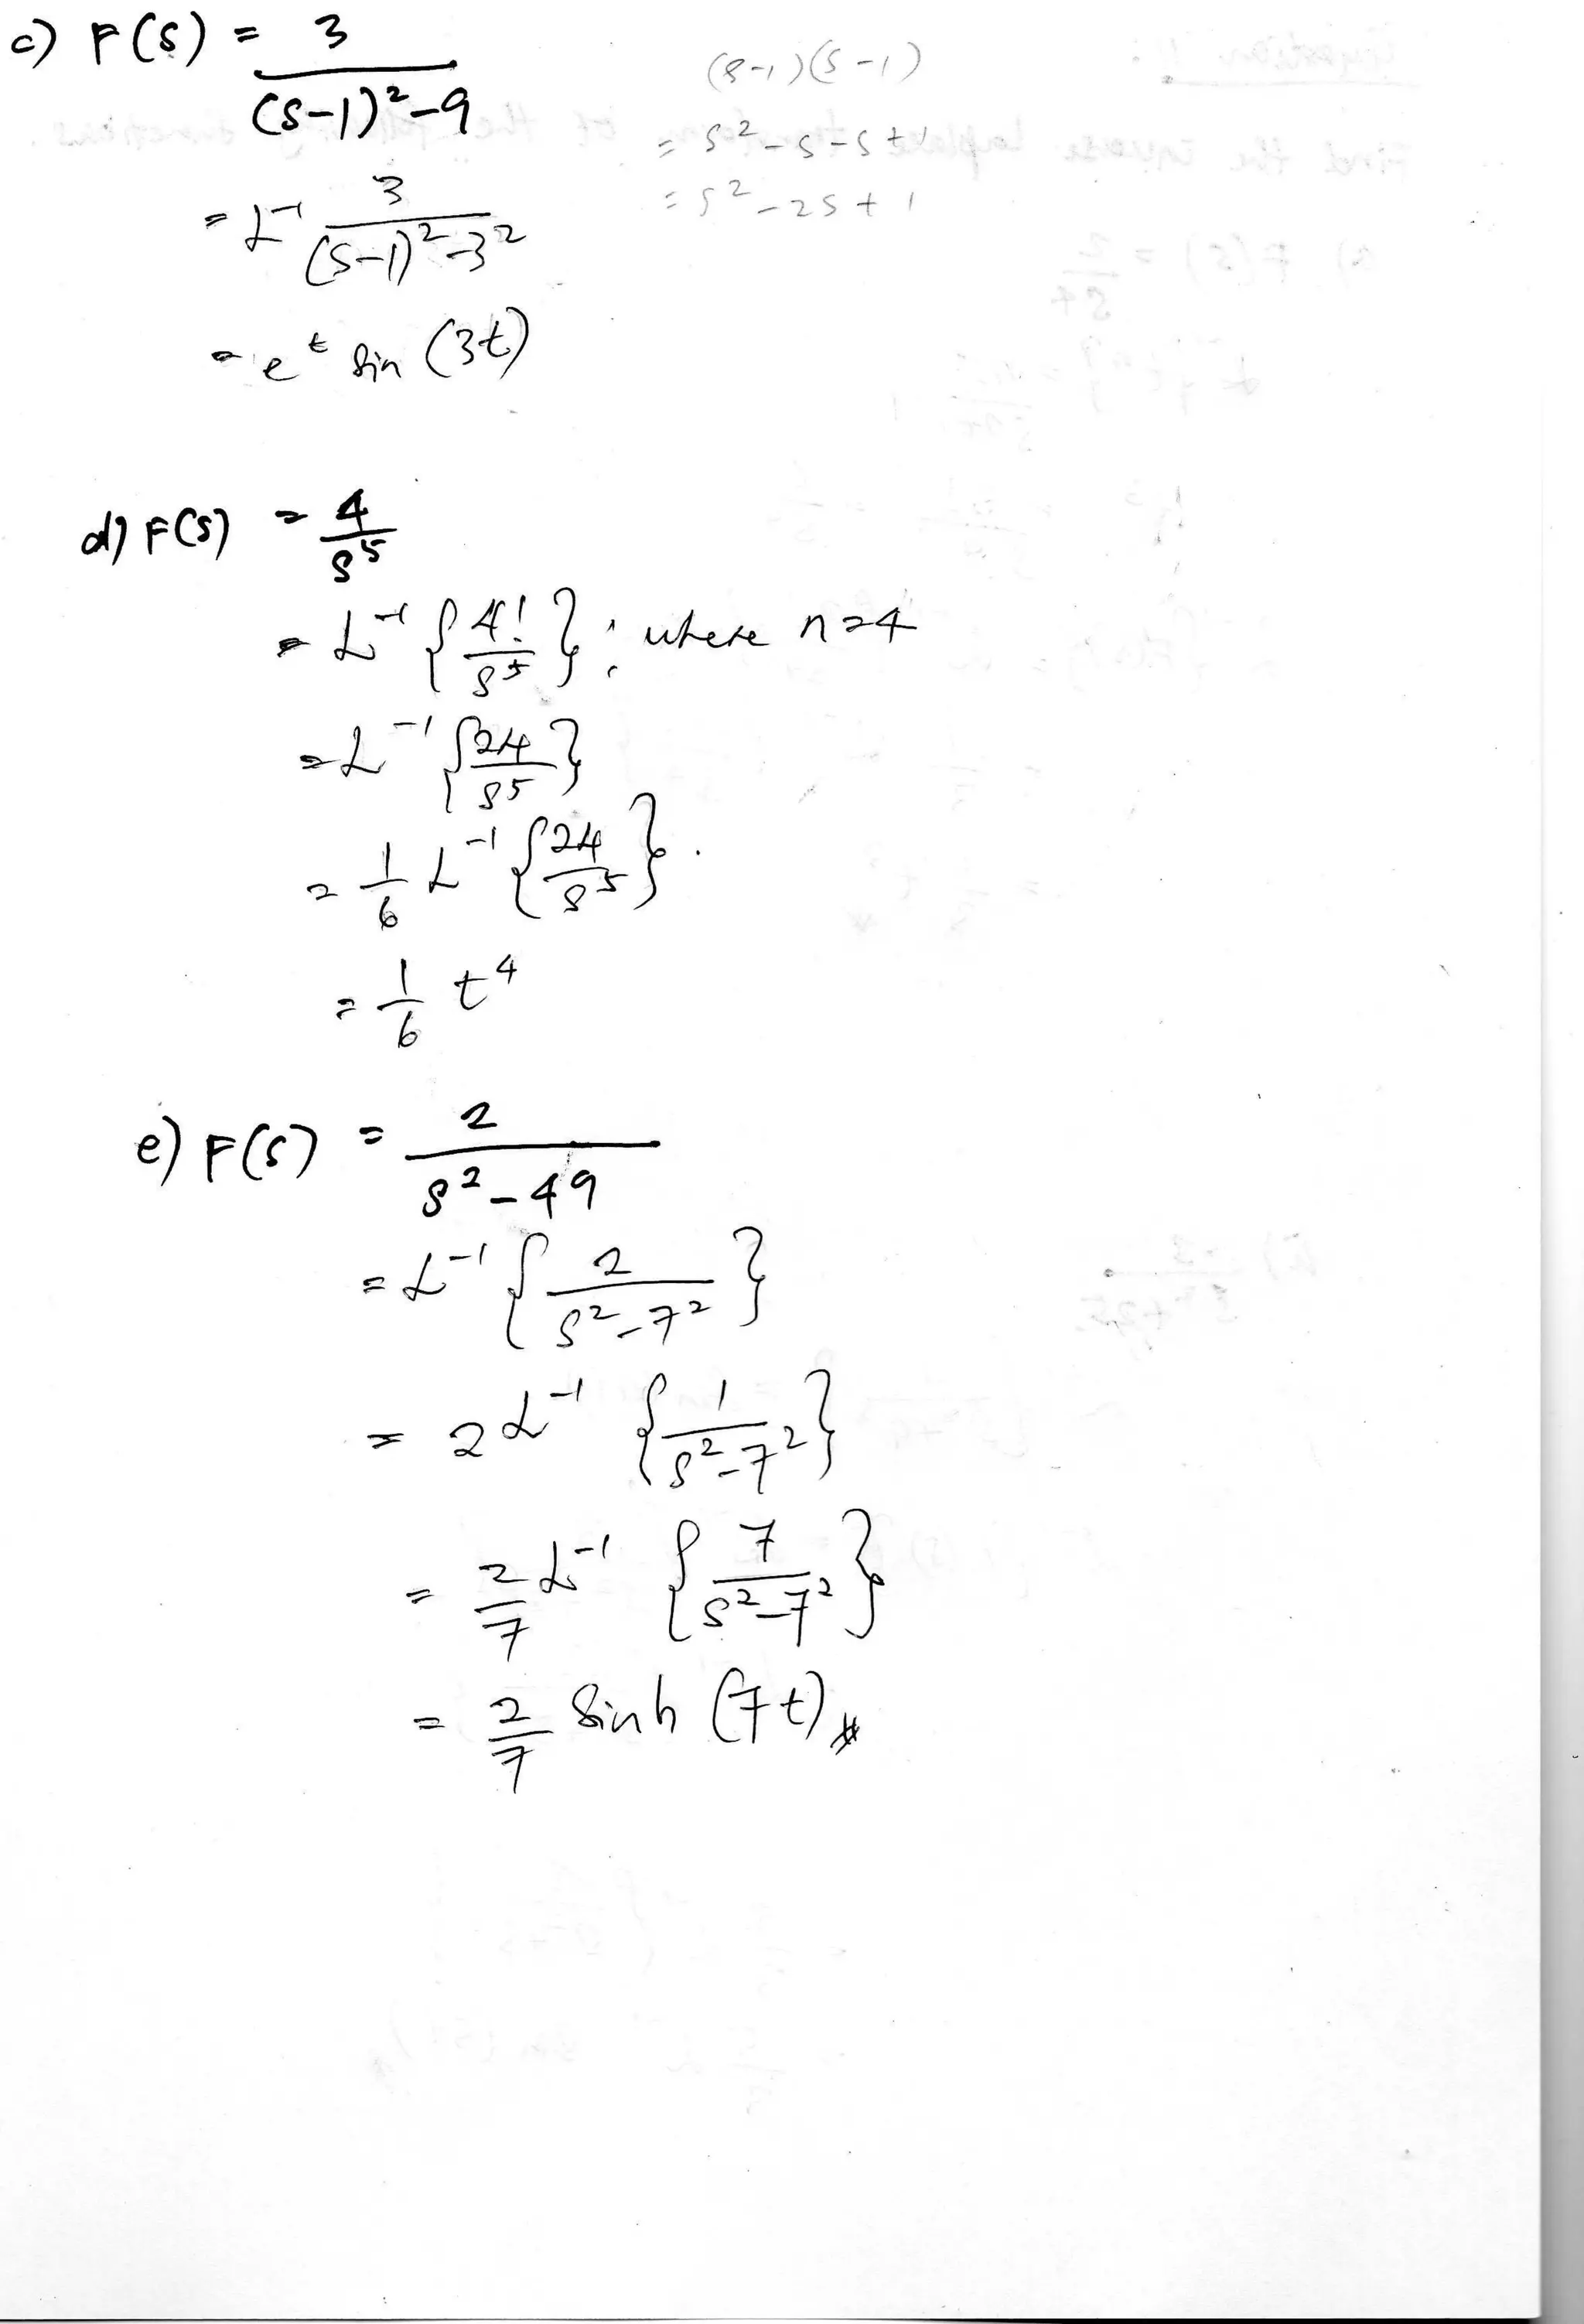 c) F(s) = 3 / (s-1)²-9
(s-1)(s-1)
= s²-s-s+1
= s²-2s+1
= L⁻¹ 3 / (s-1)²-3²
= e^t sin (3t)
d) F(s) = 4/s⁵
= L⁻¹ {4!/s⁵} ; where n=4
= L⁻¹ {24/s⁵}
= 1/6 L⁻¹ {24/s⁵}.
= 1/6 t⁴
e) F(s) = 2 / s²-49
= L⁻¹ {2 / s²-7²}
= 2 L⁻¹ {1 / s²-7²}
= 2/7 L⁻¹ {7 / s²-7²}
= 2/7 sinh (7t)